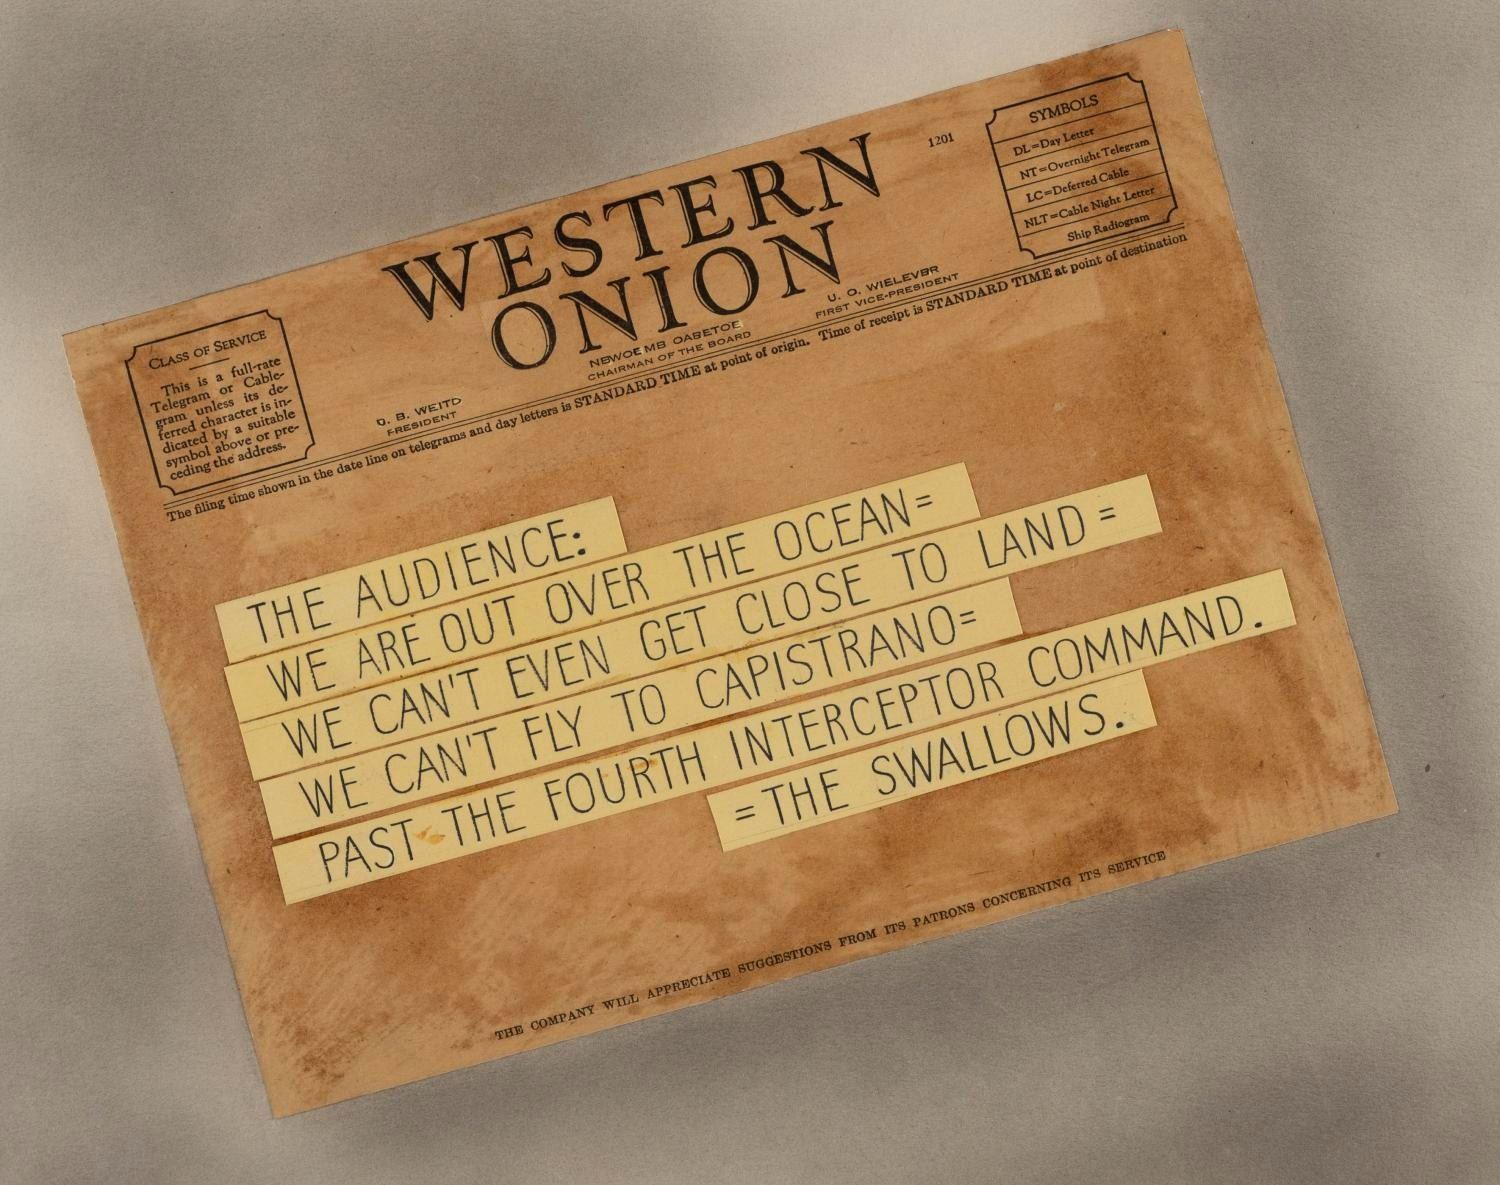 WESTERN
ONION
1201
SYMBOLS
DL=Day Letter
NT=Overnight Telegram
LC=Deferred Cable
NLT=Cable Night Letter
Ship Radiogram
CLASS OF SERVICE
This is a full-rate
Telegram or Cable-
gram unless its de-
ferred character is in-
dicated by a suitable
symbol above or pre-
ceding the address.
O. B. WEITD
PRESIDENT
NEWOEMB OABETOE
CHAIRMAN OF THE BOARD
U. O. WIELEVER
FIRST VICE-PRESIDENT
The filing time shown in the date line on telegrams and day letters is STANDARD TIME at point of origin. Time of receipt is STANDARD TIME at point of destination
THE AUDIENCE:
WE ARE OUT OVER THE OCEAN=
WE CAN'T EVEN GET CLOSE TO LAND=
WE CAN'T FLY TO CAPISTRANO=
PAST THE FOURTH INTERCEPTOR COMMAND.
=THE SWALLOWS.
THE COMPANY WILL APPRECIATE SUGGESTIONS FROM ITS PATRONS CONCERNING ITS SERVICE